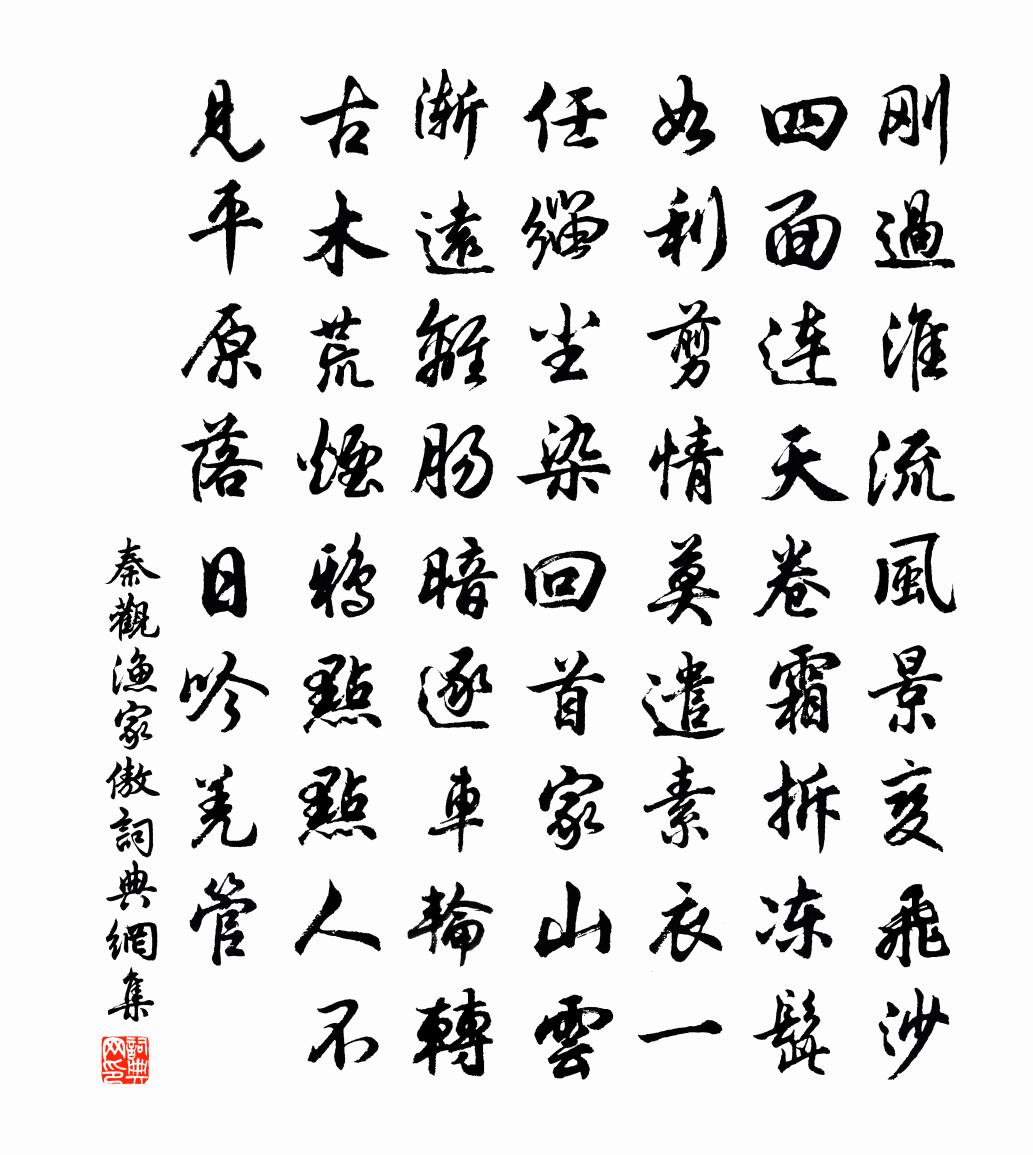 刚過淮流風景变飛沙
四面連天卷霜拆冻髭
如利剪情莫遣素衣一
任緇尘染回首家山雲
漸遠離肠暗逐車輪轉
古木荒煙鴉點點人不
見平原落日吟羌管
秦觀漁家傲詞典網集
詞典网印